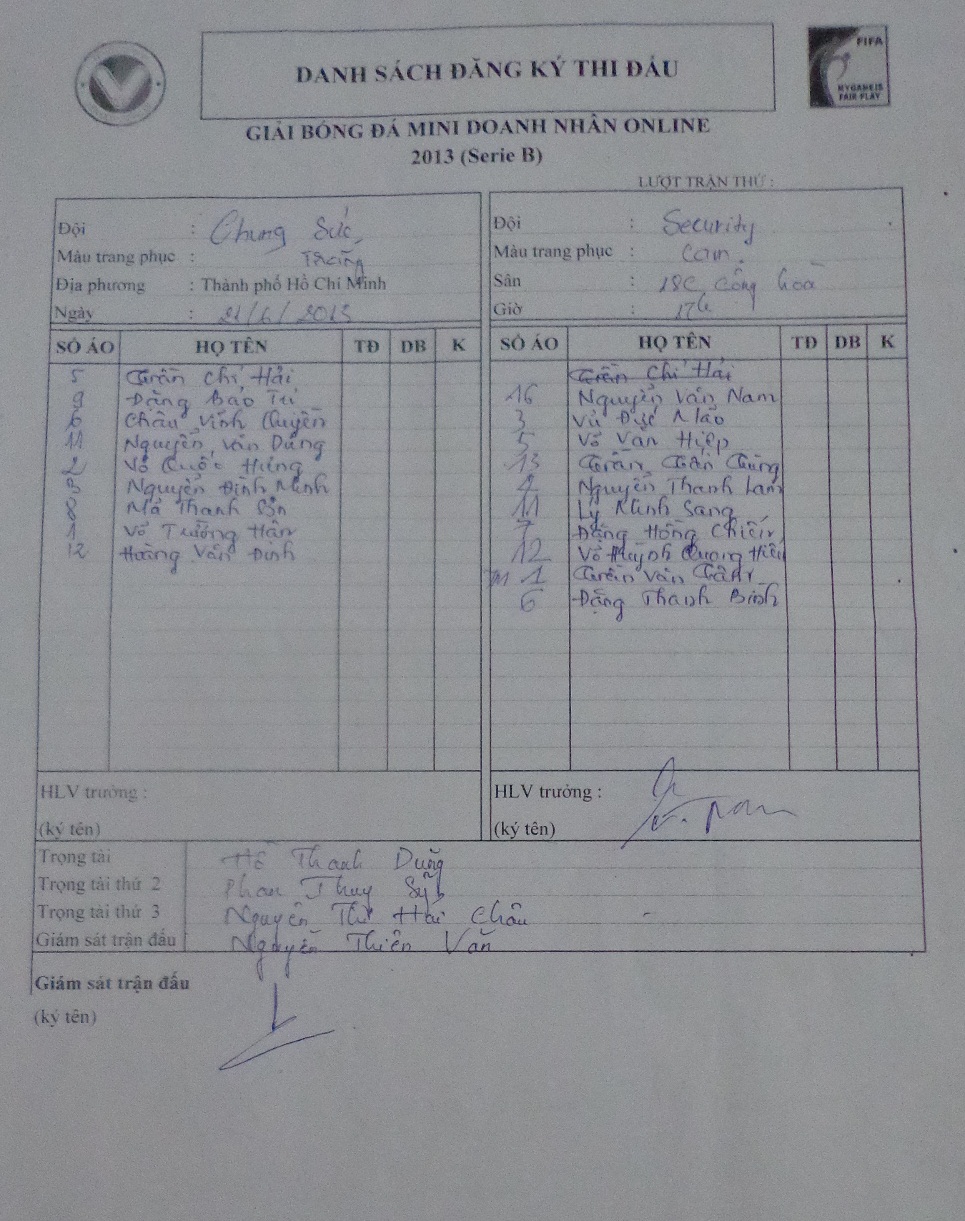 DANH SÁCH ĐĂNG KÝ THI ĐẤU
FIFA
MY GAME IS
FAIR PLAY
GIẢI BÓNG ĐÁ MINI DOANH NHÂN ONLINE
2013 (Serie B)
LƯỢT TRẬN THỨ :
Đội : Chung Sức
Màu trang phục : Trắng
Địa phương : Thành phố Hồ Chí Minh
Ngày : 21/6/2013
Đội : Security
Màu trang phục : Cam.
Sân : 18C Cộng hoà
Giờ : 17h
SỐ ÁO HỌ TÊN TĐ DB K
5 Trần Chí Hải
9 Đặng Bảo Tú
6 Châu Vĩnh Quyền
11 Nguyễn Văn Dũng
2 Võ Quốc Hưng
3 Nguyễn Đình Minh
8 Mã Thanh Sơn
1 Võ Trường Hận
12 Hoàng Văn Định
SỐ ÁO HỌ TÊN TĐ DB K
Trần Chí Hải
16 Nguyễn Văn Nam
3 Vũ Đức
5 Võ Văn Hiệp
13 Trần
Nguyễn Thanh Lam
11 Lý Minh Sang
7 Đặng Hồng Chiến
12 Võ Huỳnh Quang Hiếu
1 Trần Văn
6 Đặng Thanh Bình
HLV trưởng :
(ký tên)
HLV trưởng :
(ký tên)
Trọng tài Hồ Thanh Dũng
Trọng tài thứ 2 Phan Thuy Sỹ
Trọng tài thứ 3 Nguyễn Thị Hải Châu
Giám sát trận đấu Nguyễn Thiên Văn
Giám sát trận đấu
(ký tên)